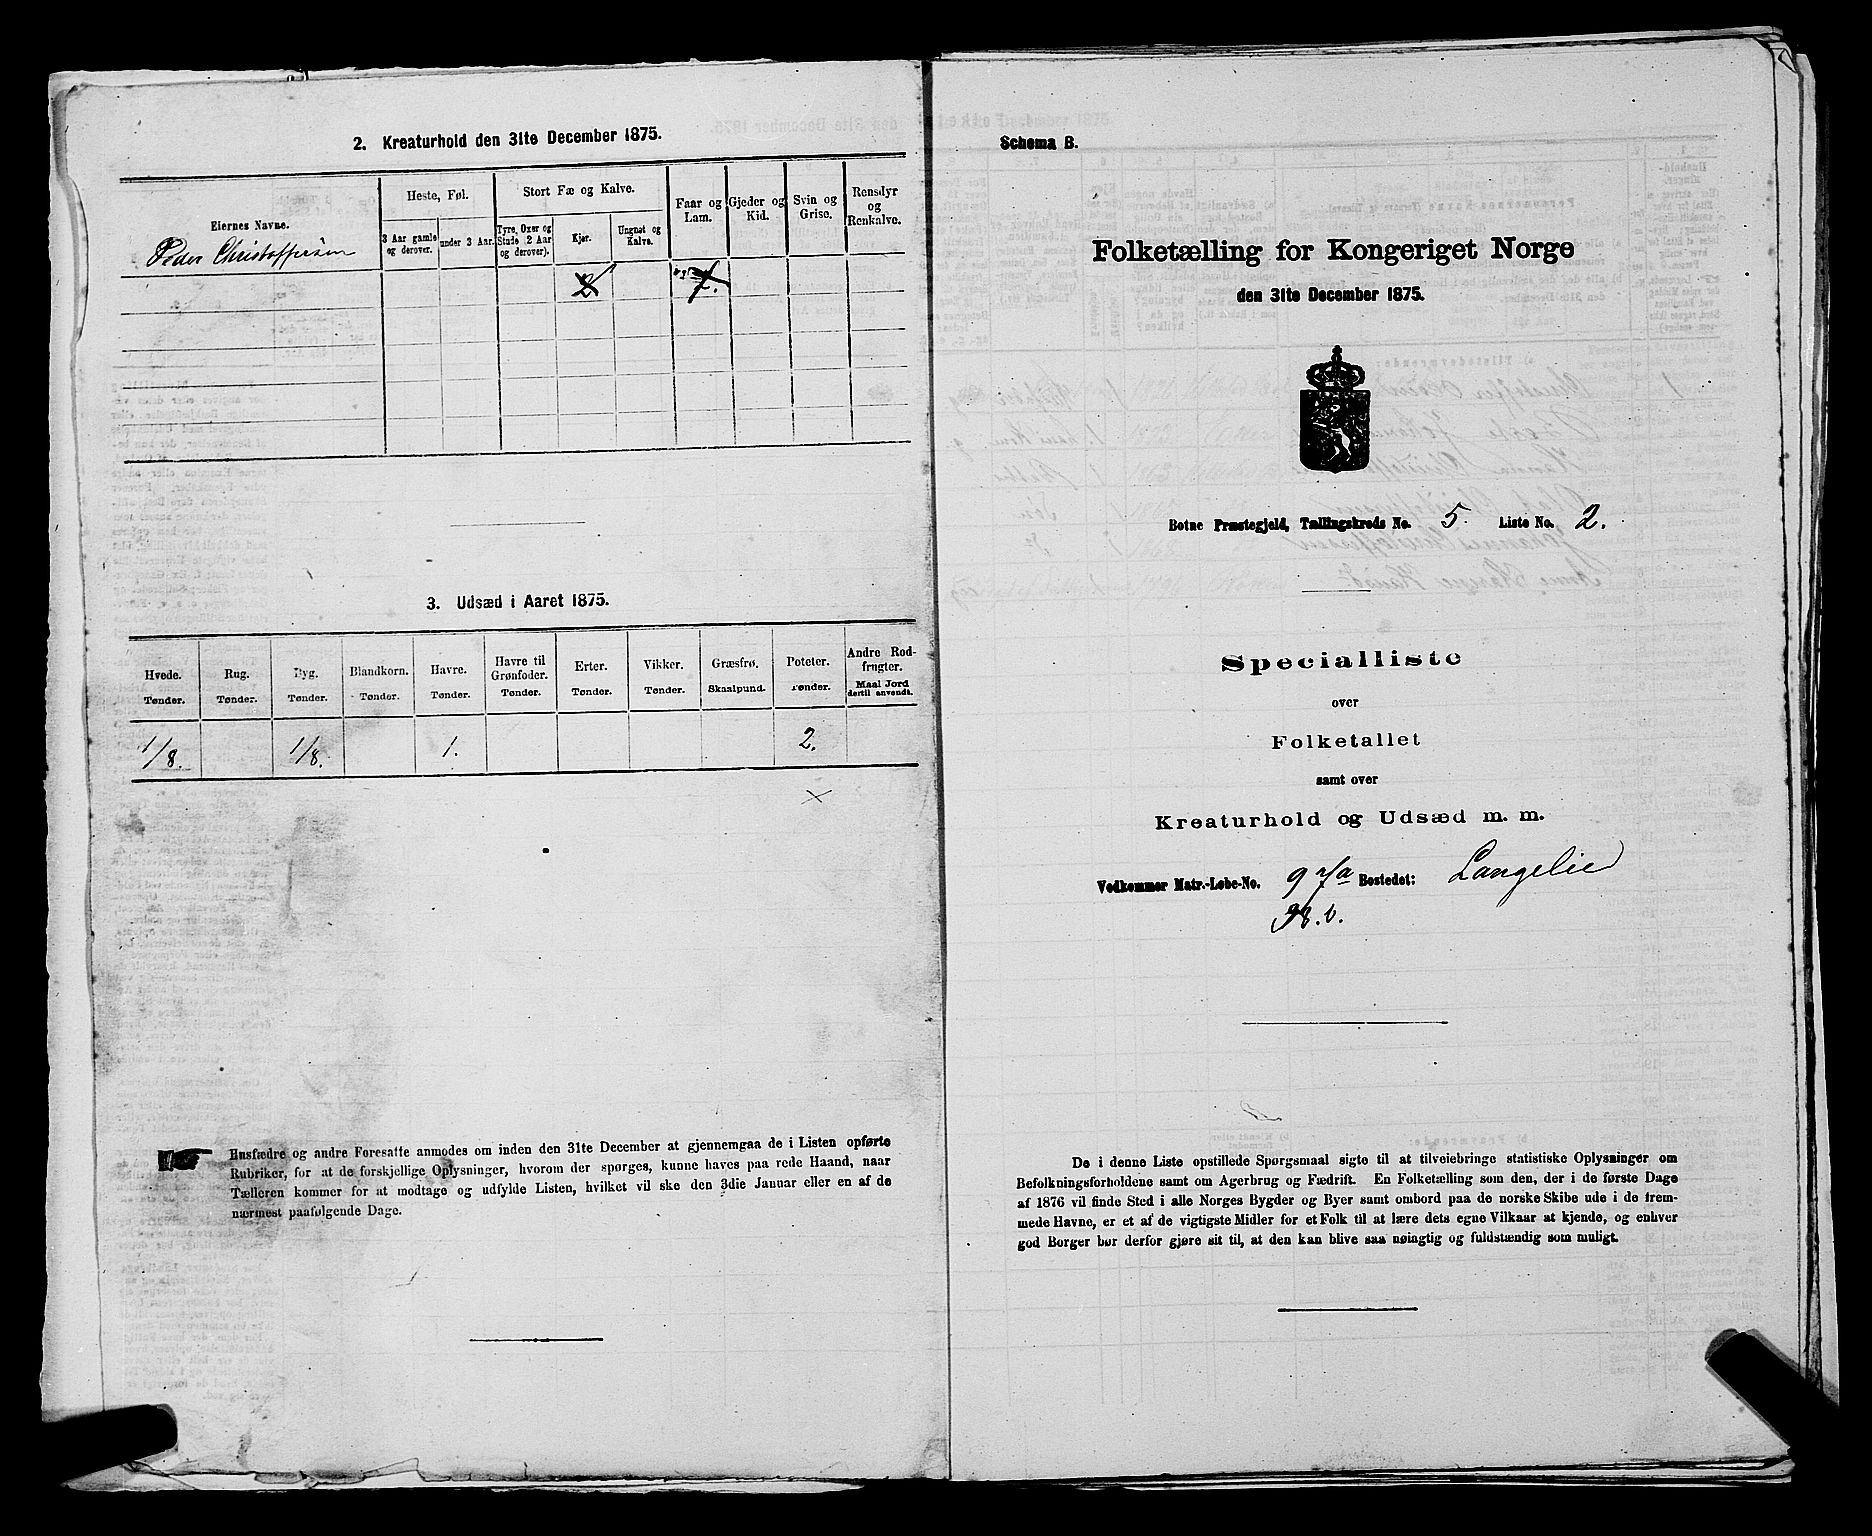 2. Kreaturhold den 31te December 1875.
Eiernes Navne.
Heste, Føl.
Stort Fæ og Kalve.
Faar og Lam.
Gjeder og Kid.
Svin og Grise.
Rensdyr og Renkalve.
3 Aar gamle og derover.
under 3 Aar.
Tyre, Oxer og Stude (2 Aar og derover).
Kjør.
Ungnøt og Kalve.
Peder Christoffersen
2
3. Udsæd i Aaret 1875.
Hvede. Rug. Byg. Blandkorn. Havre. Havre til Grønfoder. Erter. Vikker. Græsfrø. Poteter. Andre Rodfrugter.
Tønder. Tønder. Tønder. Tønder. Tønder. Tønder. Tønder. Tønder. Skaalpund. Tønder. Maal Jord dertil anvendt.
1/8. 1/8. 1. 2.
Husfædre og andre Foresatte anmodes om inden den 31te December at gjennemgaa de i Listen opførte
Rubriker, for at de forskjellige Oplysninger, hvorom der spørges, kunne haves paa rede Haand, naar
Tælleren kommer for at modtage og udfylde Listen, hvilket vil ske den 3die Januar eller en af de
nærmest paafølgende Dage.
Schema B.
Folketælling for Kongeriget Norge
den 31te December 1875.
Botne Præstegjeld, Tællingskreds No. 5. Liste No. 2.
Specialliste
over
Folketallet
samt over
Kreaturhold og Udsæd m. m.
Vedkommer Matr.-Løbe-No. 97a Bostedet: Langelie
De i denne Liste opstillede Spørgsmaal sigte til at tilveiebringe statistiske Oplysninger om
Befolkningsforholdene samt om Agerbrug og Fædrift. En Folketælling som den, der i de første Dage
af 1876 vil finde Sted i alle Norges Bygder og Byer samt ombord paa de norske Skibe ude i de frem-
mede Havne, er et af de vigtigste Midler for et Folk til at lære dets egne Vilkaar at kjende, og enhver
god Borger bør derfor gjøre sit til, at den kan blive saa nøiagtig og fuldstændig som muligt.